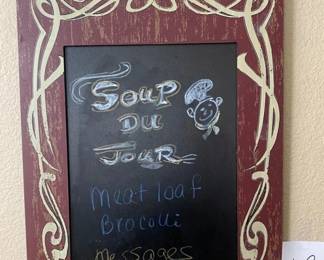 SOUP
DU
JOUR
Meat loaf
Brocolli
Messages